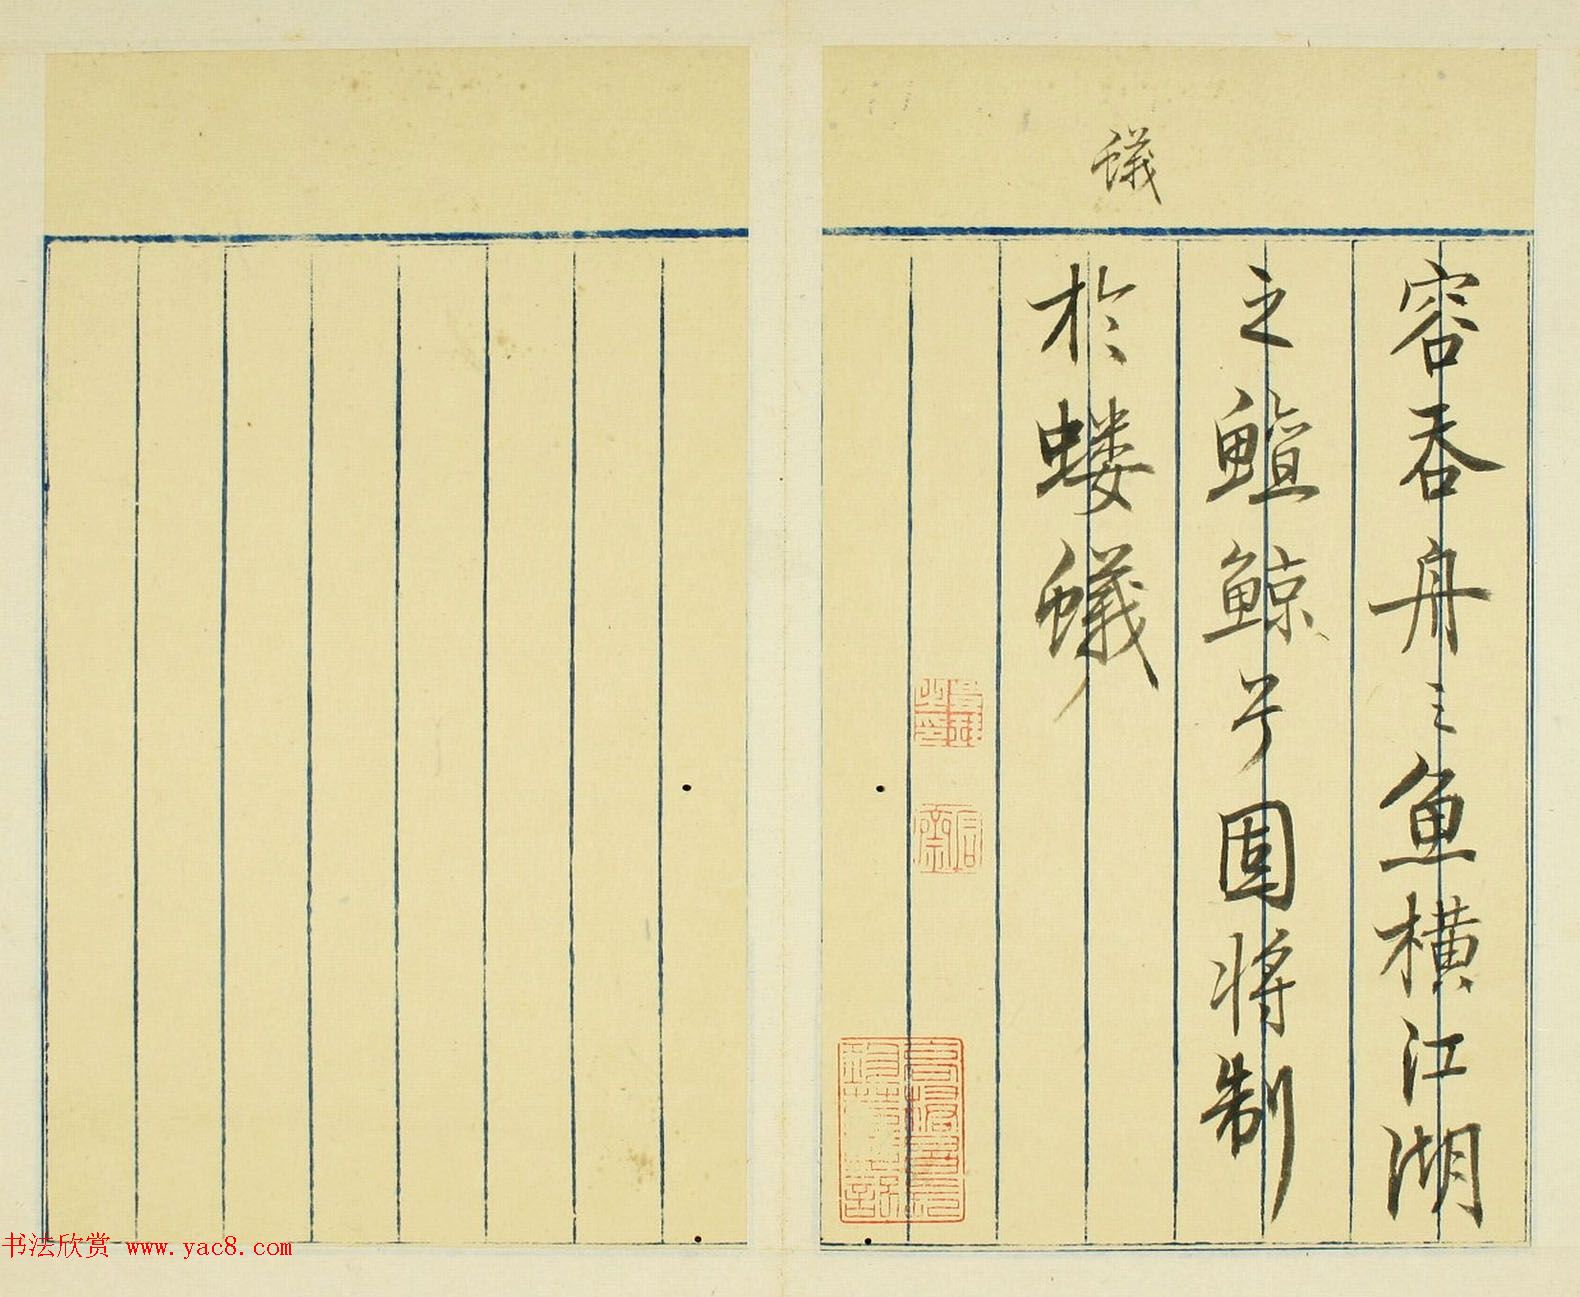 蟻
容吞舟之魚橫江湖
之鱣鯨兮固將制
於螻蟻
书法欣赏 www.yac8.com